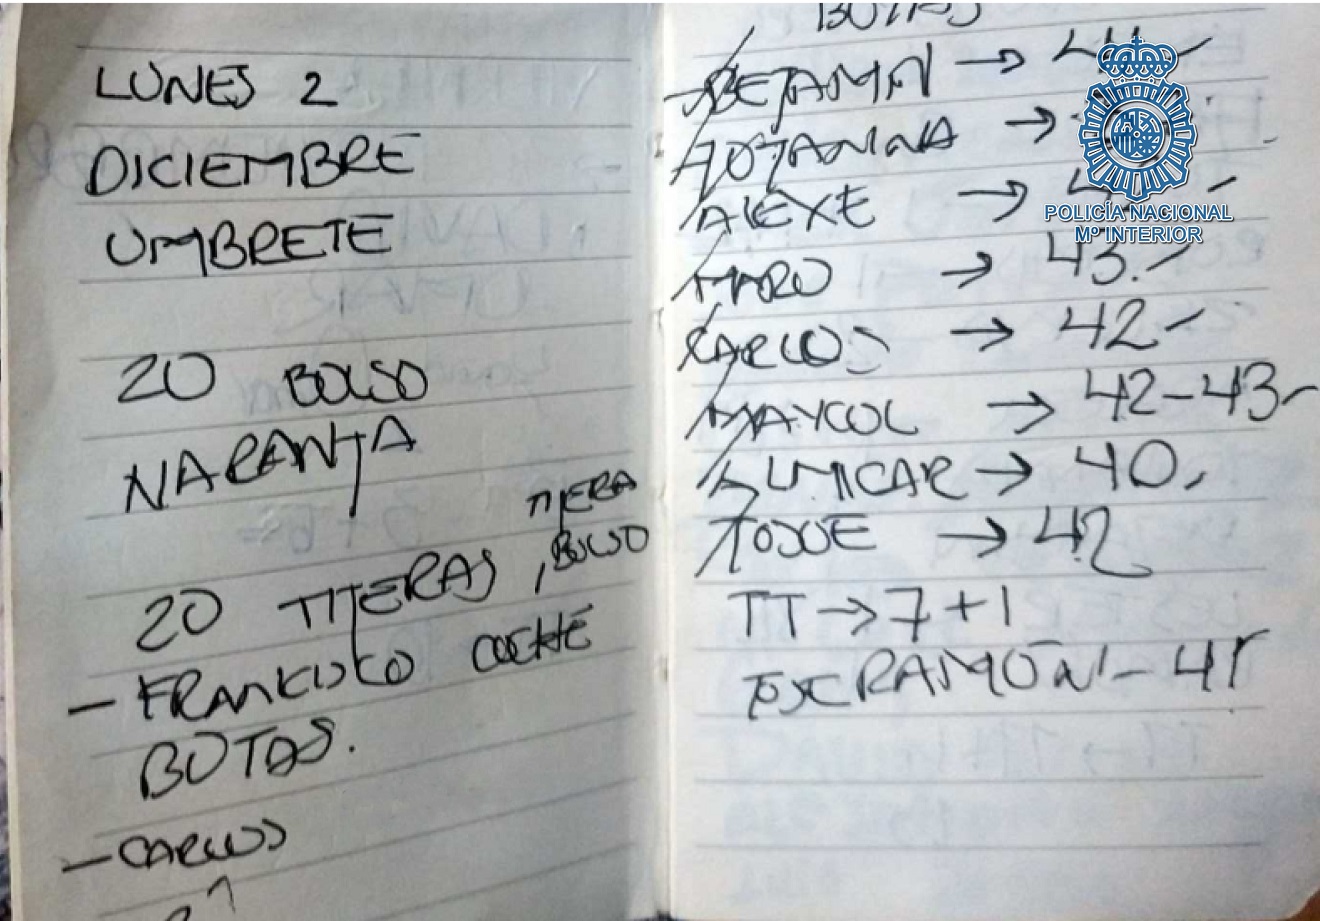 LUNES 2
DICIEMBRE
UMBRETE
20 BOLSO
NARANJA
TIJERA
20 TIJERAS , BOLSO
- FRANCISCO COCHE
BOTAS.
- CARLOS
BOTAS
BEJAMIN →
→
ALEXE →
MARO → 43.
CARLOS → 42
MAYCOL → 42-43
ALMICAR → 40
JOSUE → 42
TT → 7 + 1
RAMÓN - 41
POLICÍA NACIONAL
Mº INTERIOR